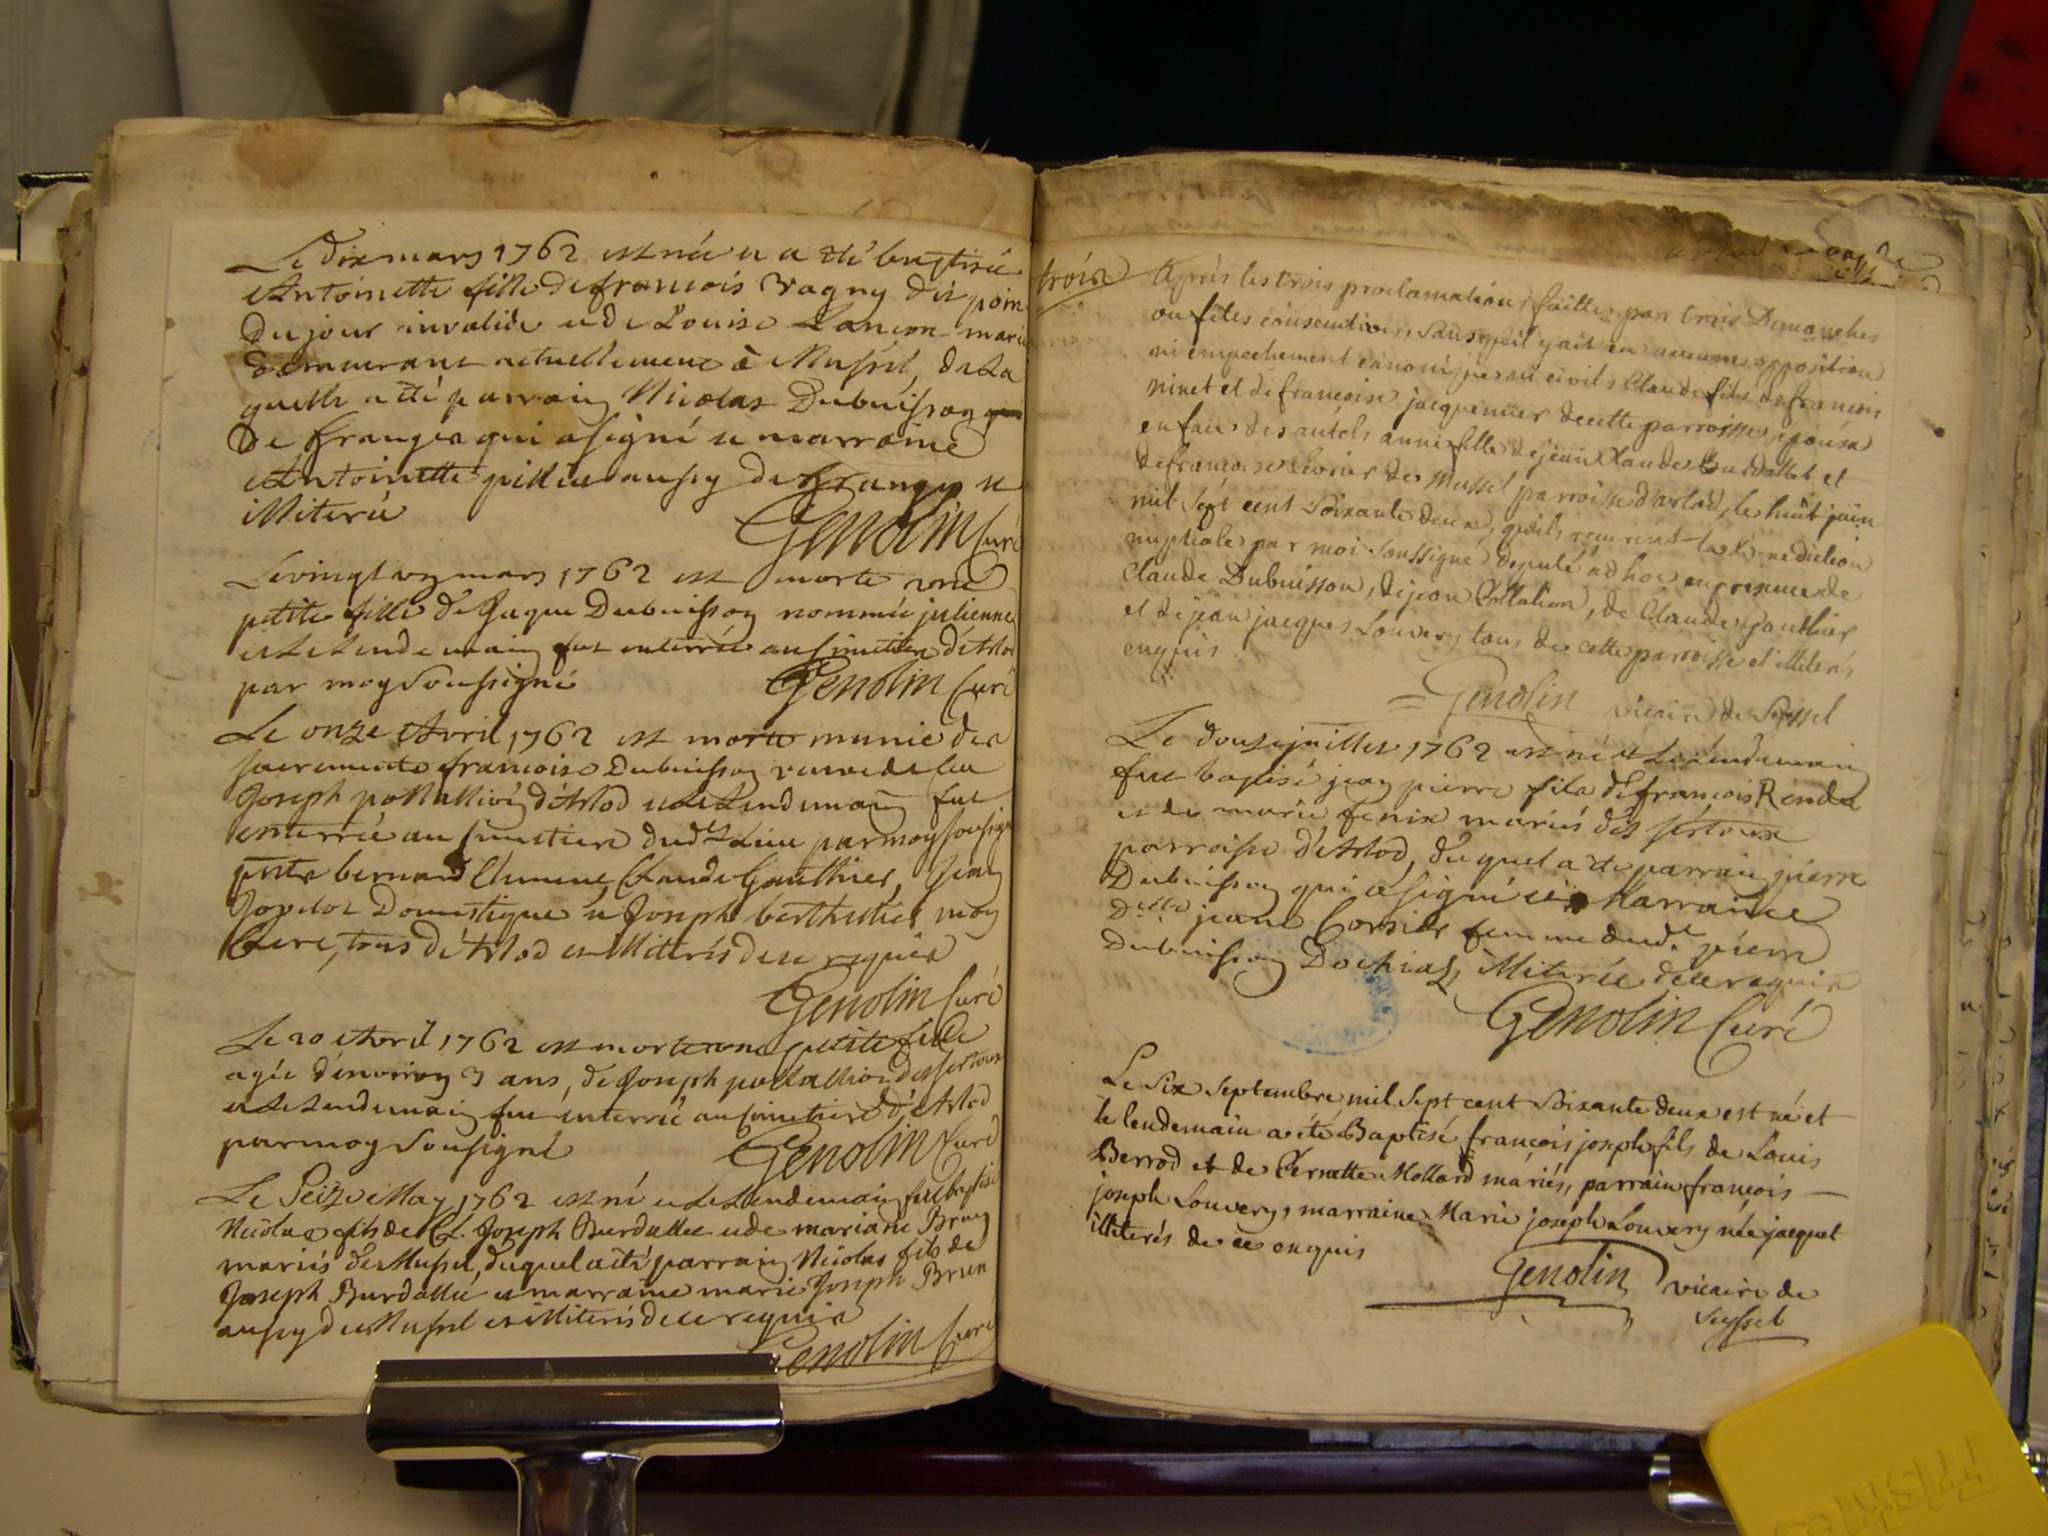 Le dix mars 1762 est née et a été baptisée
Antoinette fille de francois Vagny dit poin
du jour invalide et de Louise Lancon mariés
demeurant actuellement à Mussel, de la
quelle a été parrain Nicolas Dubuisson
de frangia qui a signé et marraine
Antoinette aussy de frangy et
illiterée
Genolin Curé
Le vingt un mars 1762 est morte une
petite fille de Jaque Dubuisson nommée julienne
et le lendemain fut enterrée au simetiere d'Arlod
par moy Soussigné Genolin Curé
Le onze Avril 1762 est morte munie des
sacrements francoise Dubuisson veuve de feu
Joseph poncallion d'Arlod et le lendemain fut
enterrée au simetiere dud.t Lieu par moy soussigné
bernard Claude Gauthier, Jean
Domestique et Joseph berthelier mon
Clerc, tous d'Arlod et illiterés de ce requis
Genolin Curé
Le 20 Avril 1762 est morte une petite fille
agée d'environ 3 ans, de Joseph des sertoux
et le lendemain fut enterré au cimetiere d'Arlod
par moy Soussigné Genolin Curé
Le Seize May 1762 est né et le lendemain fut baptisé
Nicolas fils de Cl. Joseph Burdallet et de mariane Brun
mariés de Mussel, duquel a été parrain Nicolas fils de
Joseph Burdallet et marraine marie Joseph Brun
aussy de Mussel et illiterés de ce requis
Genolin Curé
Après les trois proclamations faittes par trois Dimanches
ou fêtes consecutives, sans qu'il y ait eu aucune opposition
ni empechement canonique ni civil, Claude fils de francois
ninet et de francoise jacquemier de cette parroisse, épousa
en face des autels anne fille de jean Claude Burdallet et
de francoise de Mussel parroisse d'arlod, le huit juin
mil sept cent soixante deux, qu'ils reçurent la benediction
nuptiale par moi soussigné deputé ad hoc en presence de
Claude Dubuisson, de jean Callation, de Claude gauthier
et de jean jacques Louvery tous de cette parroisse et illiterés
enquis.
Genolin vicaire de Seyssel
Le douze juillet 1762 est né et le lendemain
fut baptisé jean pierre fils de francois Renda
et de marie fenix mariés des sertoux
parroisse d'Arlod, du quel a été parrain pierre
Dubuisson qui a signé et Marraine
D.elle jeane Corsier femme dud.t pierre
Dubuisson Dochiaz, illiterée de ce requis
Genolin Curé
Le six Septembre mil Sept cent Soixante deux est né et
le lendemain a été Baptisé françois joseph fils de Louis
Berrod et de Pernette Mollard mariés, parrain françois
joseph Louvery, marraine Marie joseph Louvery née jacquet
illiterés de ce enquis
Genolin vicaire de
Seyssel